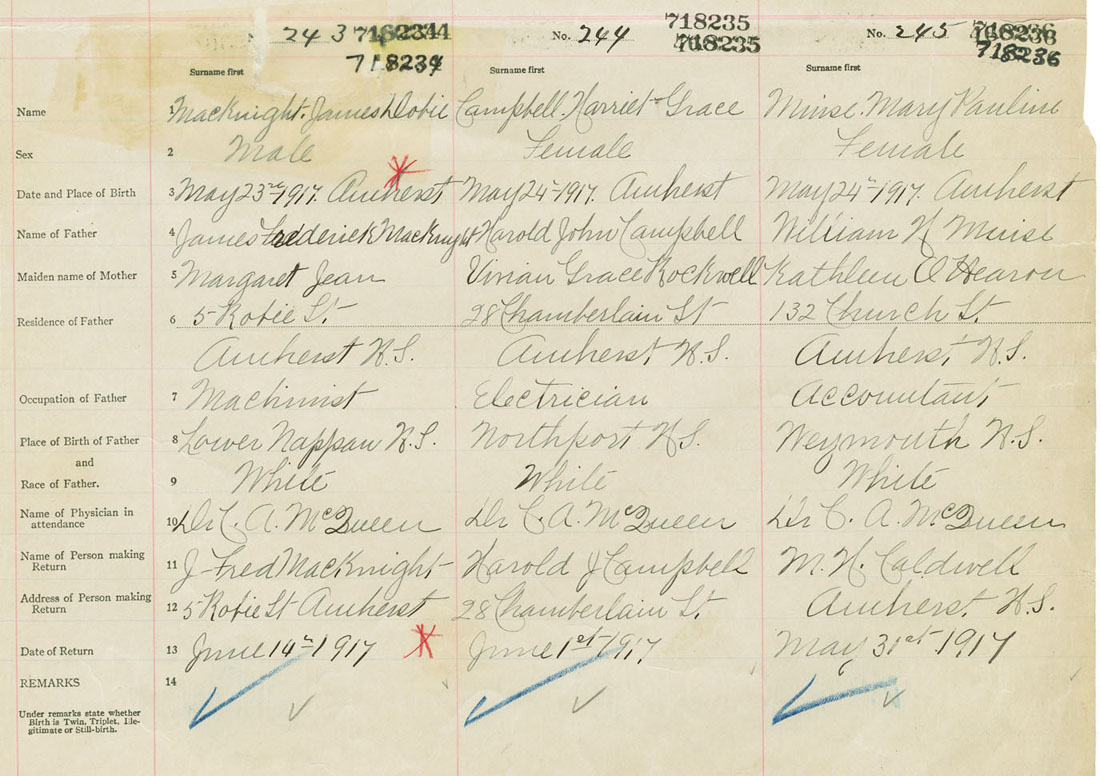 243 718234
No. 244 718235
718235
No. 245 718236
718236
718234
Surname first Surname first Surname first
Name 1 MacKnight. James Dobie Campbell. Harriet Grace Muise. Mary Pauline
Sex 2 Male Female Female
Date and Place of Birth 3 May 23rd 1917. Amherst May 24th 1917. Amherst May 24th 1917. Amherst
Name of Father 4 James Frederick MacKnight Harold John Campbell William H Muise
Maiden name of Mother 5 Margaret Jean Vivian Grace Rockwell Kathleen O'Hearon
Residence of Father 6 5 Robie St. 28 Chamberlain St 132 Church St.
Amherst N.S. Amherst, N.S. Amherst, N.S.
Occupation of Father 7 Machinist Electrician Accountant
Place of Birth of Father 8 Lower Nappan N.S. Northport N.S. Weymouth N.S.
and
Race of Father. 9 White White White
Name of Physician in
attendance 10 Dr C. A. McQueen Dr C. A. McQueen Dr C. A. McQueen
Name of Person making
Return 11 J-Fred MacKnight Harold J Campbell M. H. Caldwell
Address of Person making
Return 12 5 Robie St Amherst 28 Chamberlain St. Amherst, N.S.
Date of Return 13 June 14th 1917 June 1st 1917 May 31st 1917
REMARKS 14
Under remarks state whether
Birth is Twin, Triplet, Ille-
gitimate or Still-birth.